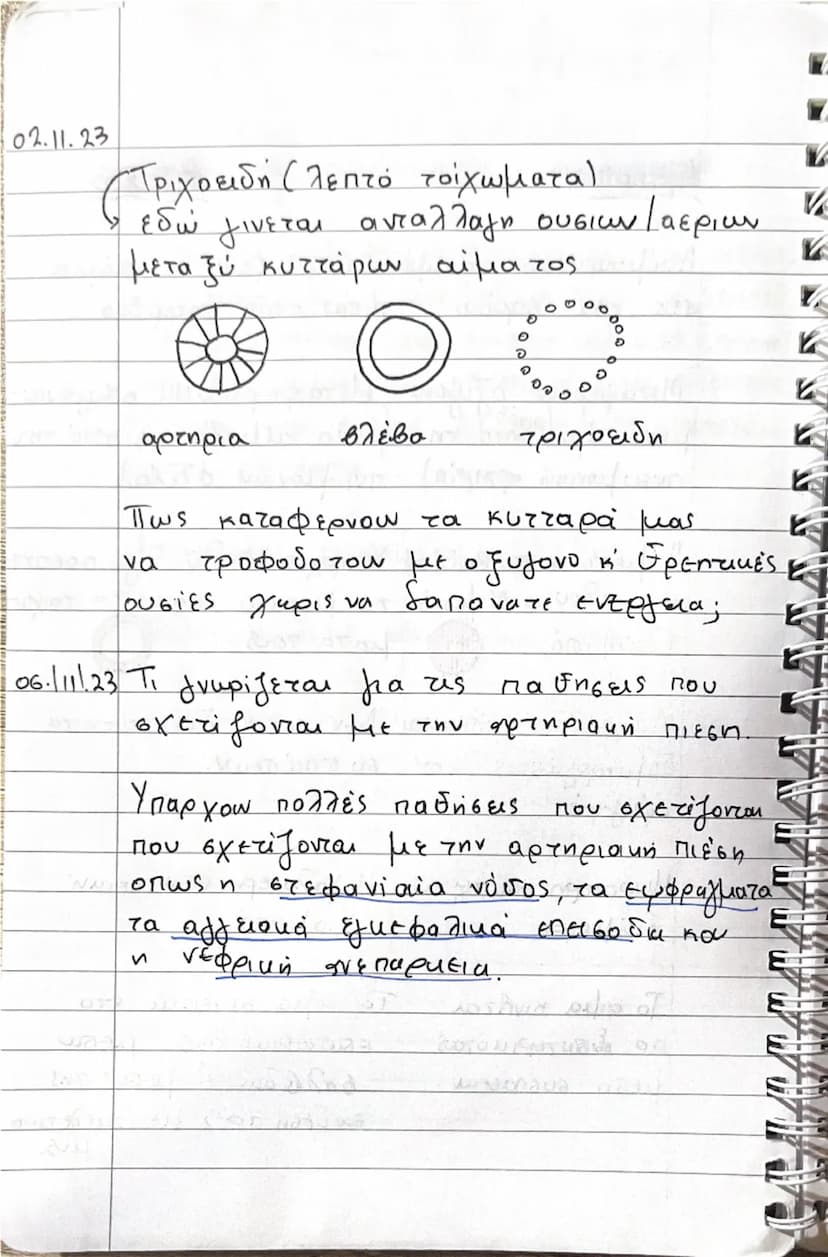 02.11.23
Τριχοειδή (λεπτό τοίχωματα)
εδώ γινεται ανταλλαγη ουσιων/αεριων
μεταξύ κυττάρων αίματος
αρτηρια βλέβα τριχοειδη
Πως καταφερνουν τα κυτταρά μας
να τροφοδοτουν με οξυγονο κ' θρεπτικές
ουσίες χωρις να δαπανατε ενεργεια;
06.11.23 Τι γνωρίζεται για τις παθησεις που
σχετίζονται με την αρτηριακή πιεση.
Υπαρχουν πολλές παθήσεις που σχετίζονται
που σχετίζονται με την αρτηριακή πιέση
οπως η στεφανιαία νόσος, τα εμφραγματα
τα αγγειακά εγκεφαλικά επεισοδια και
η νεφρική ανεπαρκεια.